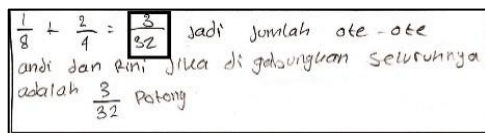 1/8 + 2/4 = 3/32 Jadi Jumlah ote-ote
andi dan Rini Jika di gabungkan Seluruhnya
adalah 3/32 Potong